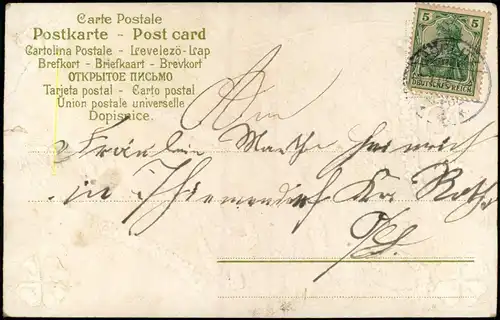 Carte Postale
Postkarte - Post card
Cartolina Postale - Levelező-Lap
Brefkort - Briefkaart - Brevkort
ОТКРЫТОЕ ПИСЬМО
Tarjeta postal - Carto postal
Union postale universelle
Dopisnice.
5 5
DEUTSCHES REICH
An
Fräulein Marthe Heinrich
in Thiemendorf Krs. Rothe